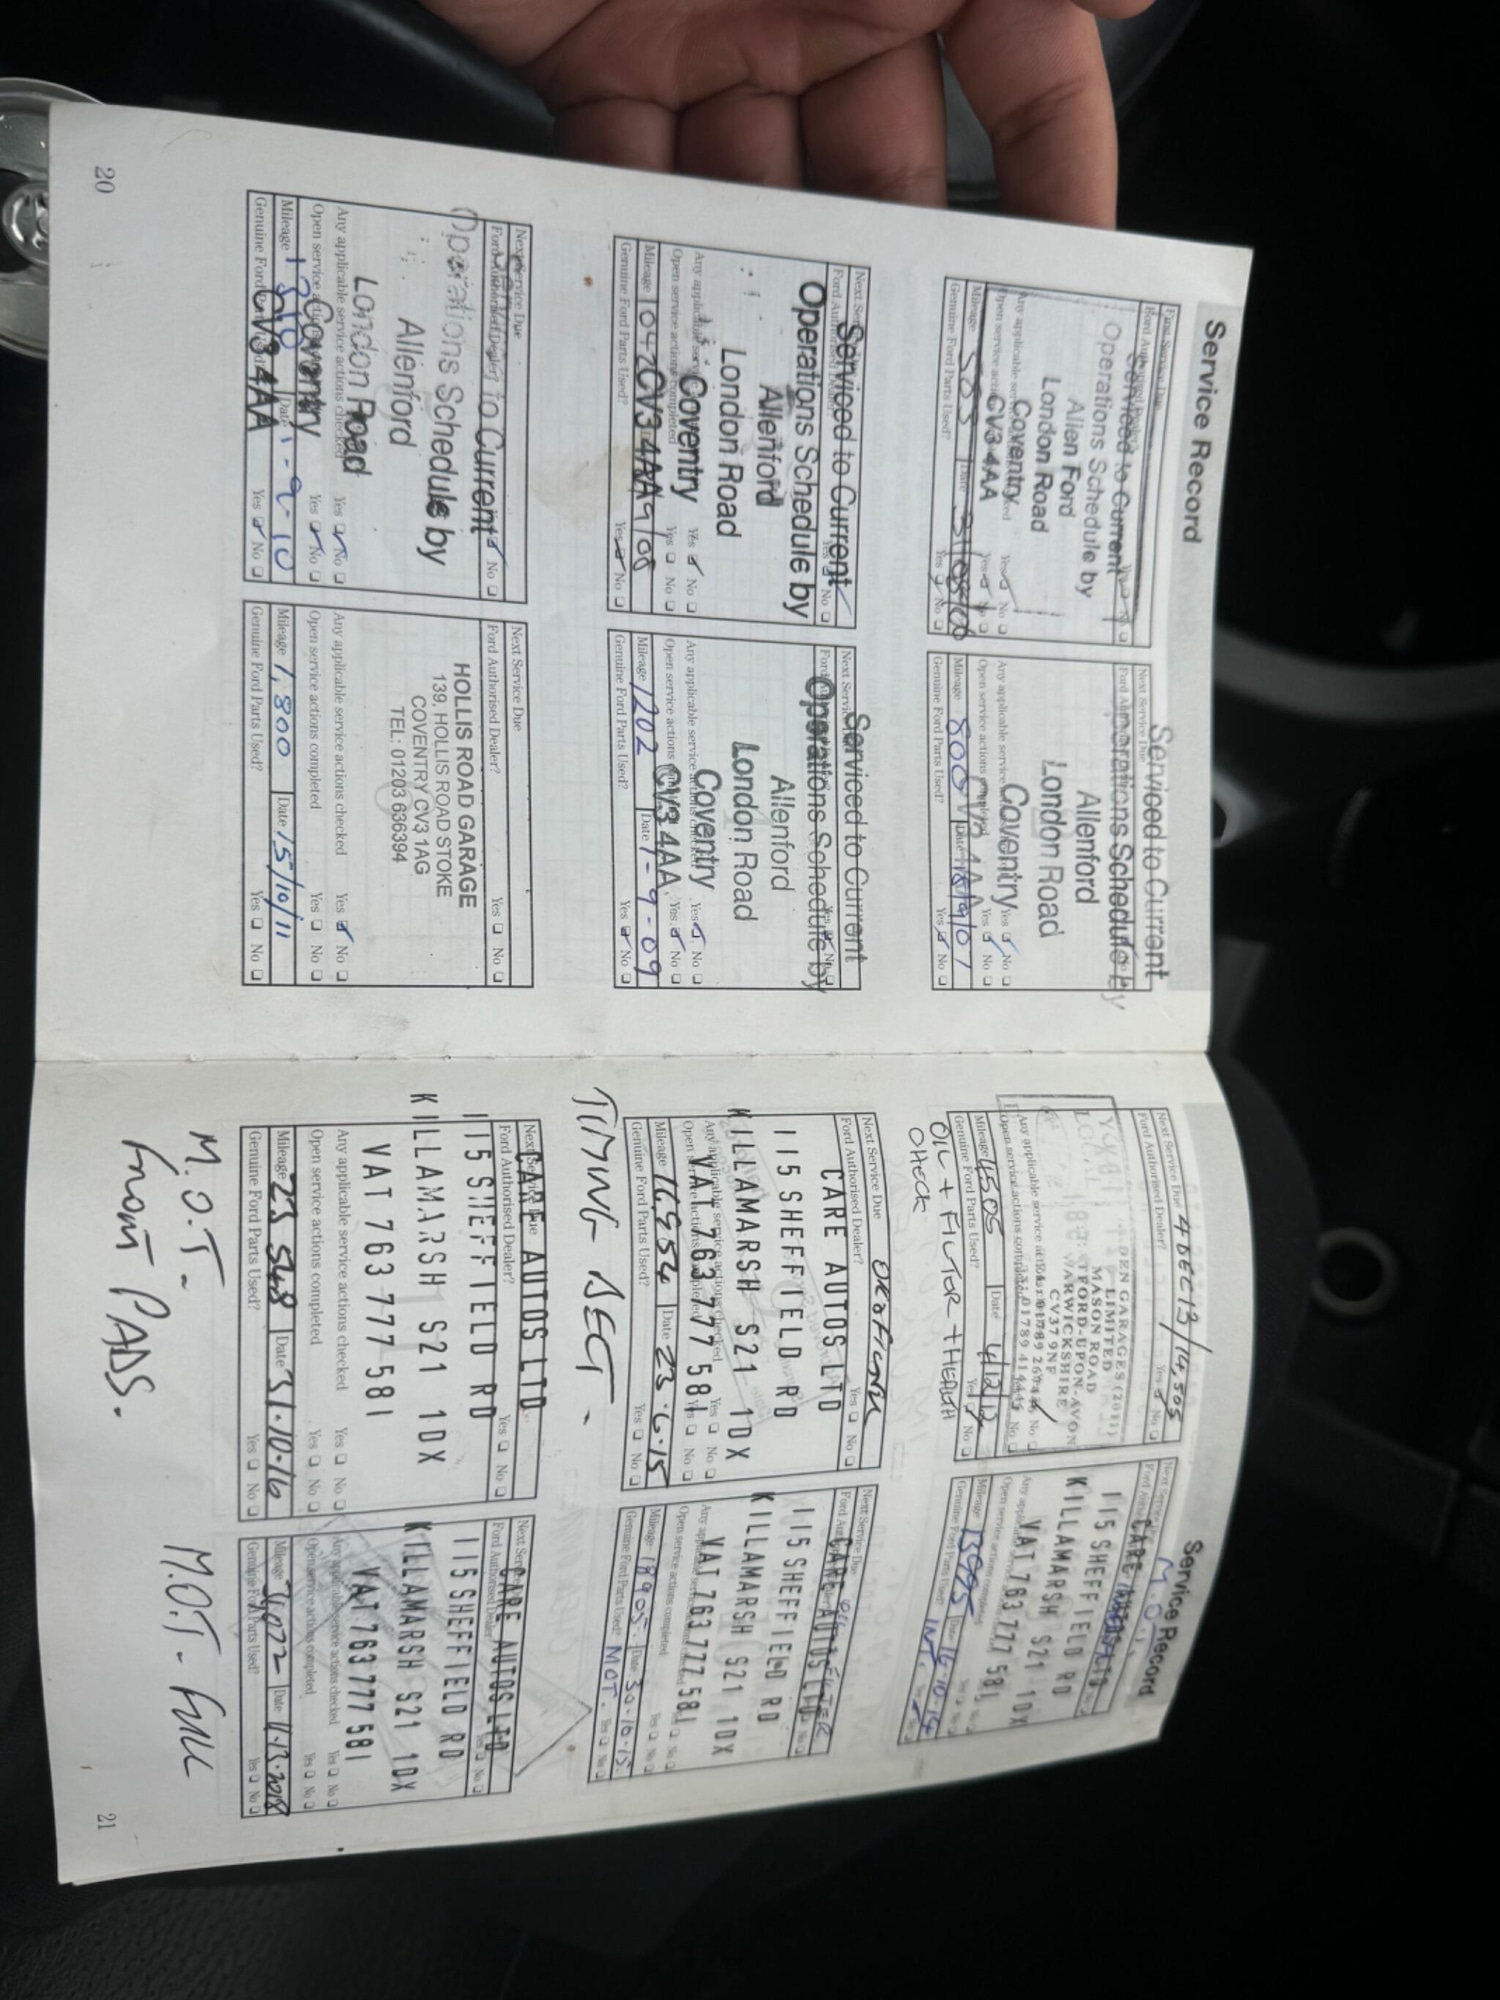 Service Record
First Service Due
Ford Authorised Dealer?
Serviced to Current
Operations Schedule by
Allen Ford
London Road
Coventry
CV3 4AA
Any applicable service
Open service actions completed
Yes No
Mileage 503 Date 31/08/06
Genuine Ford Parts Used? Yes No
Next Service Due
Serviced to Current
Operations Schedule by
Allenford
London Road
Coventry
Any applicable service
Open service actions
Yes No
Mileage 800 Date
Genuine Ford Parts Used? Yes No
Next Service Due
Ford Authorised Dealer?
Serviced to Current
Operations Schedule by
Allenford
London Road
Coventry
CV3 4AA
Any applicable service
Open service actions completed Yes No
Mileage 1042 9/08
Genuine Ford Parts Used? Yes No
Next Service Due
Serviced to Current
Operations Schedule by
Allenford
London Road
Coventry
CV3 4AA
Any applicable service actions checked Yes No
Open service actions Yes No
Mileage 1202 Date 1-9-09
Genuine Ford Parts Used? Yes No
Next Service Due
Ford Authorised Dealer? No
to Current
Operations Schedule by
Allenford
London Road
Coventry
CV3 4AA
Any applicable service actions checked Yes No
Open service actions Yes No
Mileage Date 1-9-10
Genuine Ford Yes No
Next Service Due
Ford Authorised Dealer? Yes No
HOLLIS ROAD GARAGE
139, HOLLIS ROAD STOKE
COVENTRY CV3 1AG
TEL: 01203 636394
Any applicable service actions checked Yes No
Open service actions completed Yes No
Mileage 1,800 Date 15/10/11
Genuine Ford Parts Used? Yes No
20
Service Record
Next Service Due 4 DEC 13/14,505
Ford Authorised Dealer? Yes No
DEN GARAGES (2011)
LIMITED
MASON ROAD
TFORD-UPON-AVON
WARWICKSHIRE
CV37 9NF
Any applicable service
Open service actions completed
Mileage 4505 Date 4/12/12
Genuine Ford Parts Used? Yes No
OIL + FILTER + HEALTH
CHECK
Next Service
M.O.T
CARE AUTOS LTD
115 SHEFFIELD RD
KILLAMARSH S21 10X
VAT 763 777 581
Open service actions completed
Mileage 13995 Date 16.10.14
Genuine Ford Parts Used?
Next Service Due
Ford Authorised Dealer? Yes No
CARE AUTOS LTD
115 SHEFFIELD RD
KILLAMARSH S21 10X
VAT 763 777 581
Any applicable service actions checked Yes No
Open service actions completed Yes No
Mileage 16,854 Date 23.6.15
Genuine Ford Parts Used? Yes No
TIMING BELT -
Next Service Due
CARE AUTOS LTD
115 SHEFFIELD RD
KILLAMARSH S21 10X
VAT 763 777 581
Open service actions completed Yes No
Mileage 18905. Date 30.10.15.
Genuine Ford Parts Used? MOT. Yes No
Next Service Due
Ford Authorised Dealer? Yes No
CARE AUTOS LTD
115 SHEFFIELD RD
KILLAMARSH S21 10X
VAT 763 777 581
Any applicable service actions checked Yes No
Open service actions completed Yes No
Mileage 23 548 Date 31.10.16
Genuine Ford Parts Used? Yes No
M.O.T -
FRONT PADS.
Next Service
Ford Authorised Dealer?
CARE AUTOS LTD
115 SHEFFIELD RD
KILLAMARSH S21 10X
VAT 763 777 581
Any applicable service actions checked Yes No
Open service actions completed Yes No
Mileage Date
Genuine Ford Parts Used? Yes No
M.O.T - FULL
21